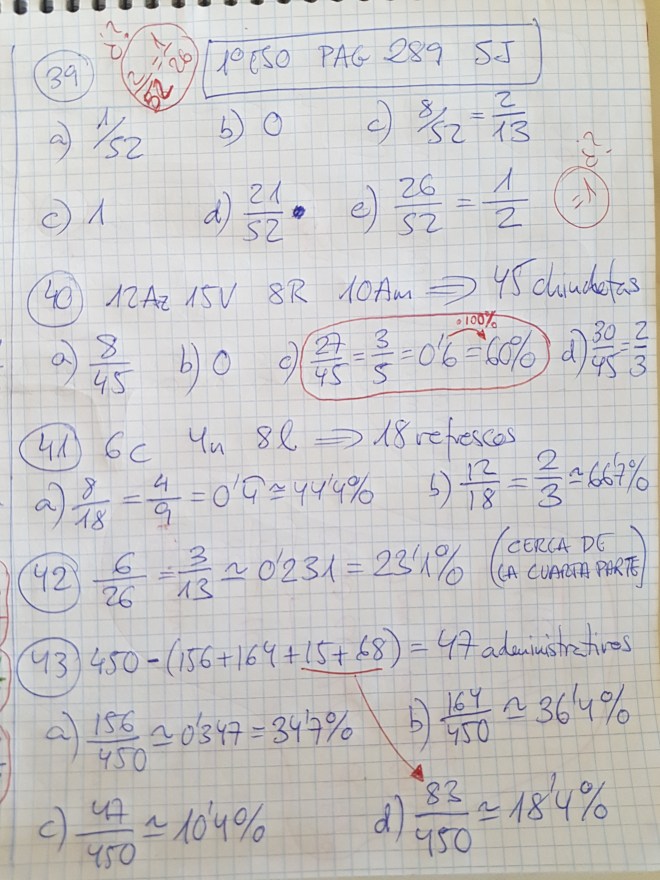 39 ¿? 2/52 = 1/26 1º ESO PAG 289 SJ
a) 1/52 b) 0 c) 8/52 = 2/13
c) 1 d) 21/52 e) 26/52 = 1/2 = 1 ¿?
40 12Az 15V 8R 10Am ⇒ 45 chinchetas
·100%
a) 8/45 b) 0 c) 27/45 = 3/5 = 0'6 = 60% d) 30/45 = 2/3
41 6c 4n 8l ⇒ 18 refrescos
a) 8/18 = 4/9 = 0'4̄ ≃ 44'4% b) 12/18 = 2/3 ≃ 66'7%
42 6/26 = 3/13 ≃ 0'231 = 23'1% (CERCA DE LA CUARTA PARTE)
43 450 - (156+164+15+68) = 47 administrativos
a) 156/450 ≃ 0'347 = 34'7% b) 164/450 ≃ 36'4%
c) 47/450 ≃ 10'4% d) 83/450 ≃ 18'4%